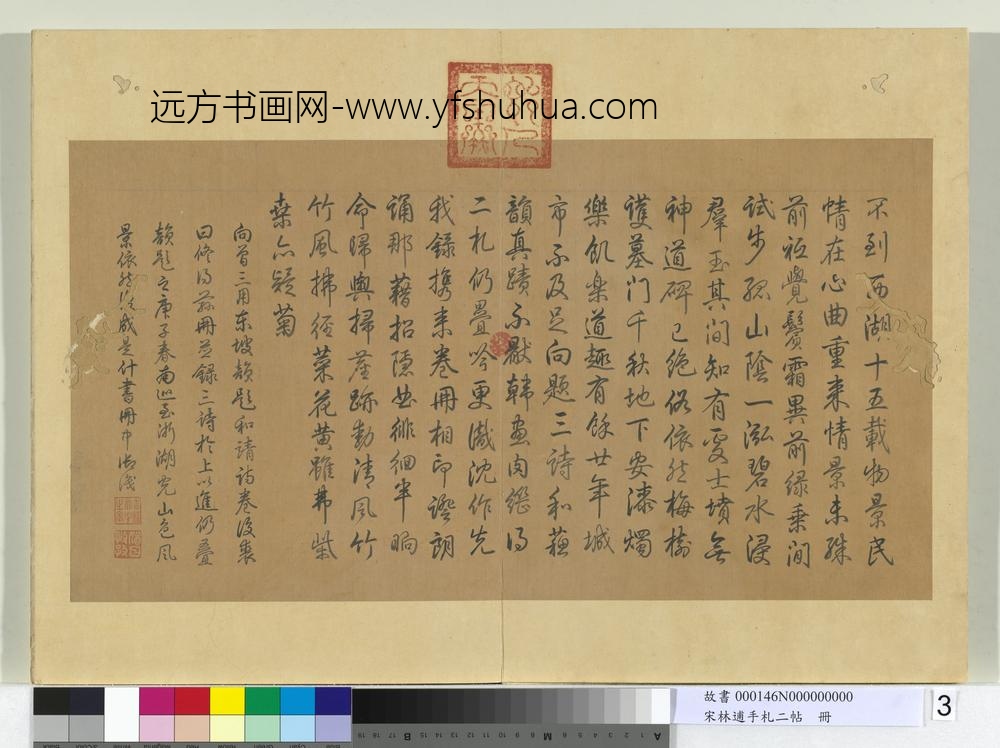 远方书画网-www.yfshuhua.com
不到西湖十五載物景民
情在心曲重来情景未殊
前祗覺鬢霜異前緑乘間
試步孤山陰一泓碧水浸
羣玉其間知有處士墳無
神道碑已絶俗依然梅樹
護墓門千秋地下安漆燭
樂飢樂道趣有餘廿年城
市不及足向題三詩和蘇
韻真蹟不厭韓畫肉繼得
二札仍疊吟更識沈作先
我録携来卷冊相印證朗
誦那藉招隱曲徘徊半晌
命歸輿掃跡動清風竹
竹風拂徑菜花黄雖弗紫
桑亦疑菊
向曾三用東坡韻題和靖詩卷後裘
曰修得茲冊並録三詩於上以進仍疊
韻題之庚子春南巡至浙湖光山色風
景依然成是什書冊中御識
故書 000146N000000000
宋林逋手札二帖 冊
3